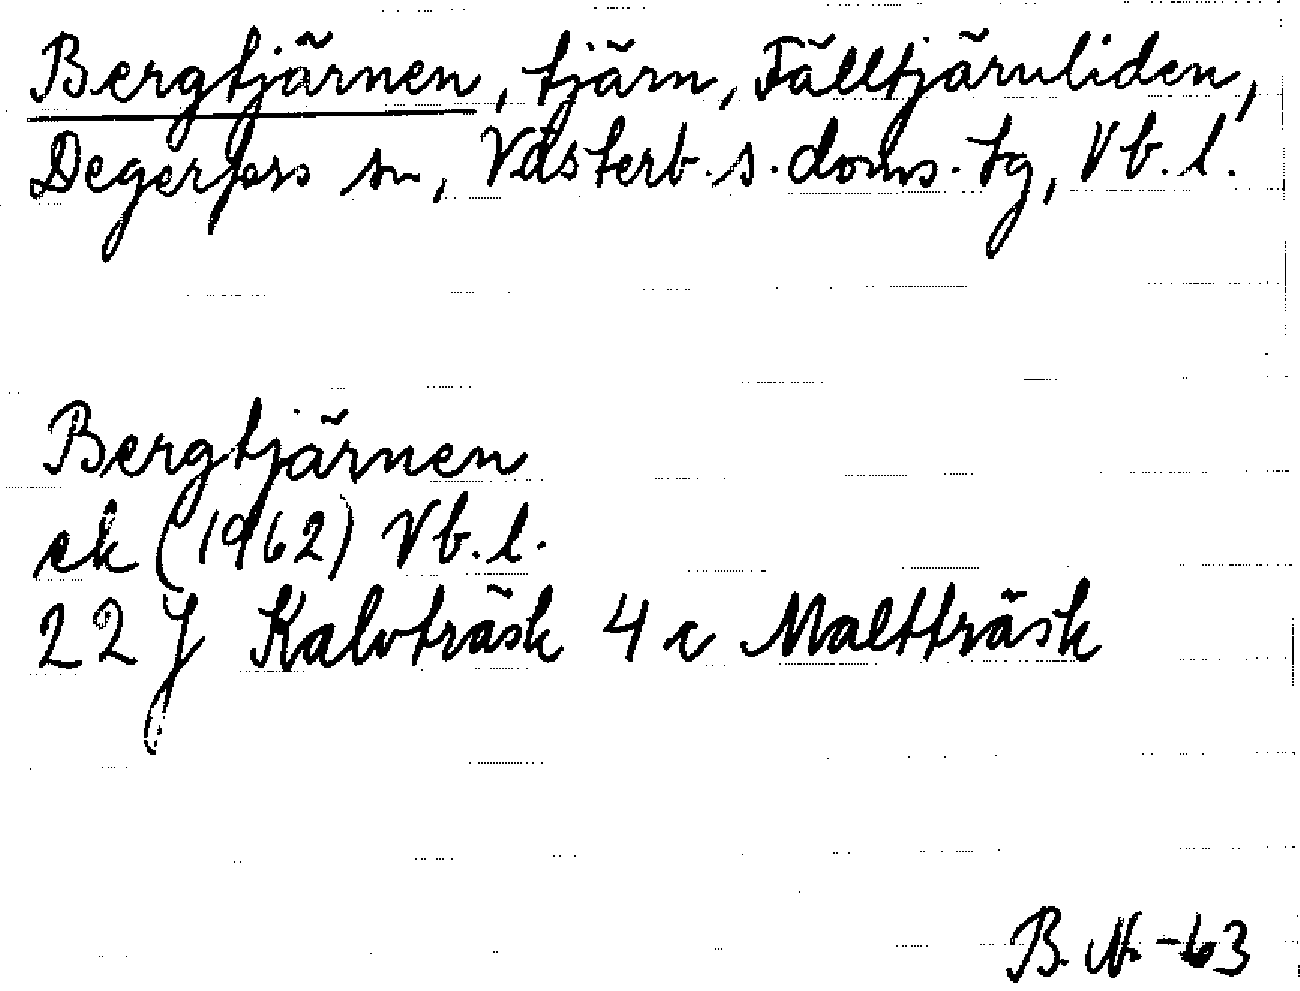 Bergtjärnen, tjärn, Fälltjärnliden,
Degerfors sn, Västerb. s. doms. tg, Vb. l.
Bergtjärnen
ek (1962) Vb. l.
22 J Kalvträsk 4 c Maltträsk
B. N. -63